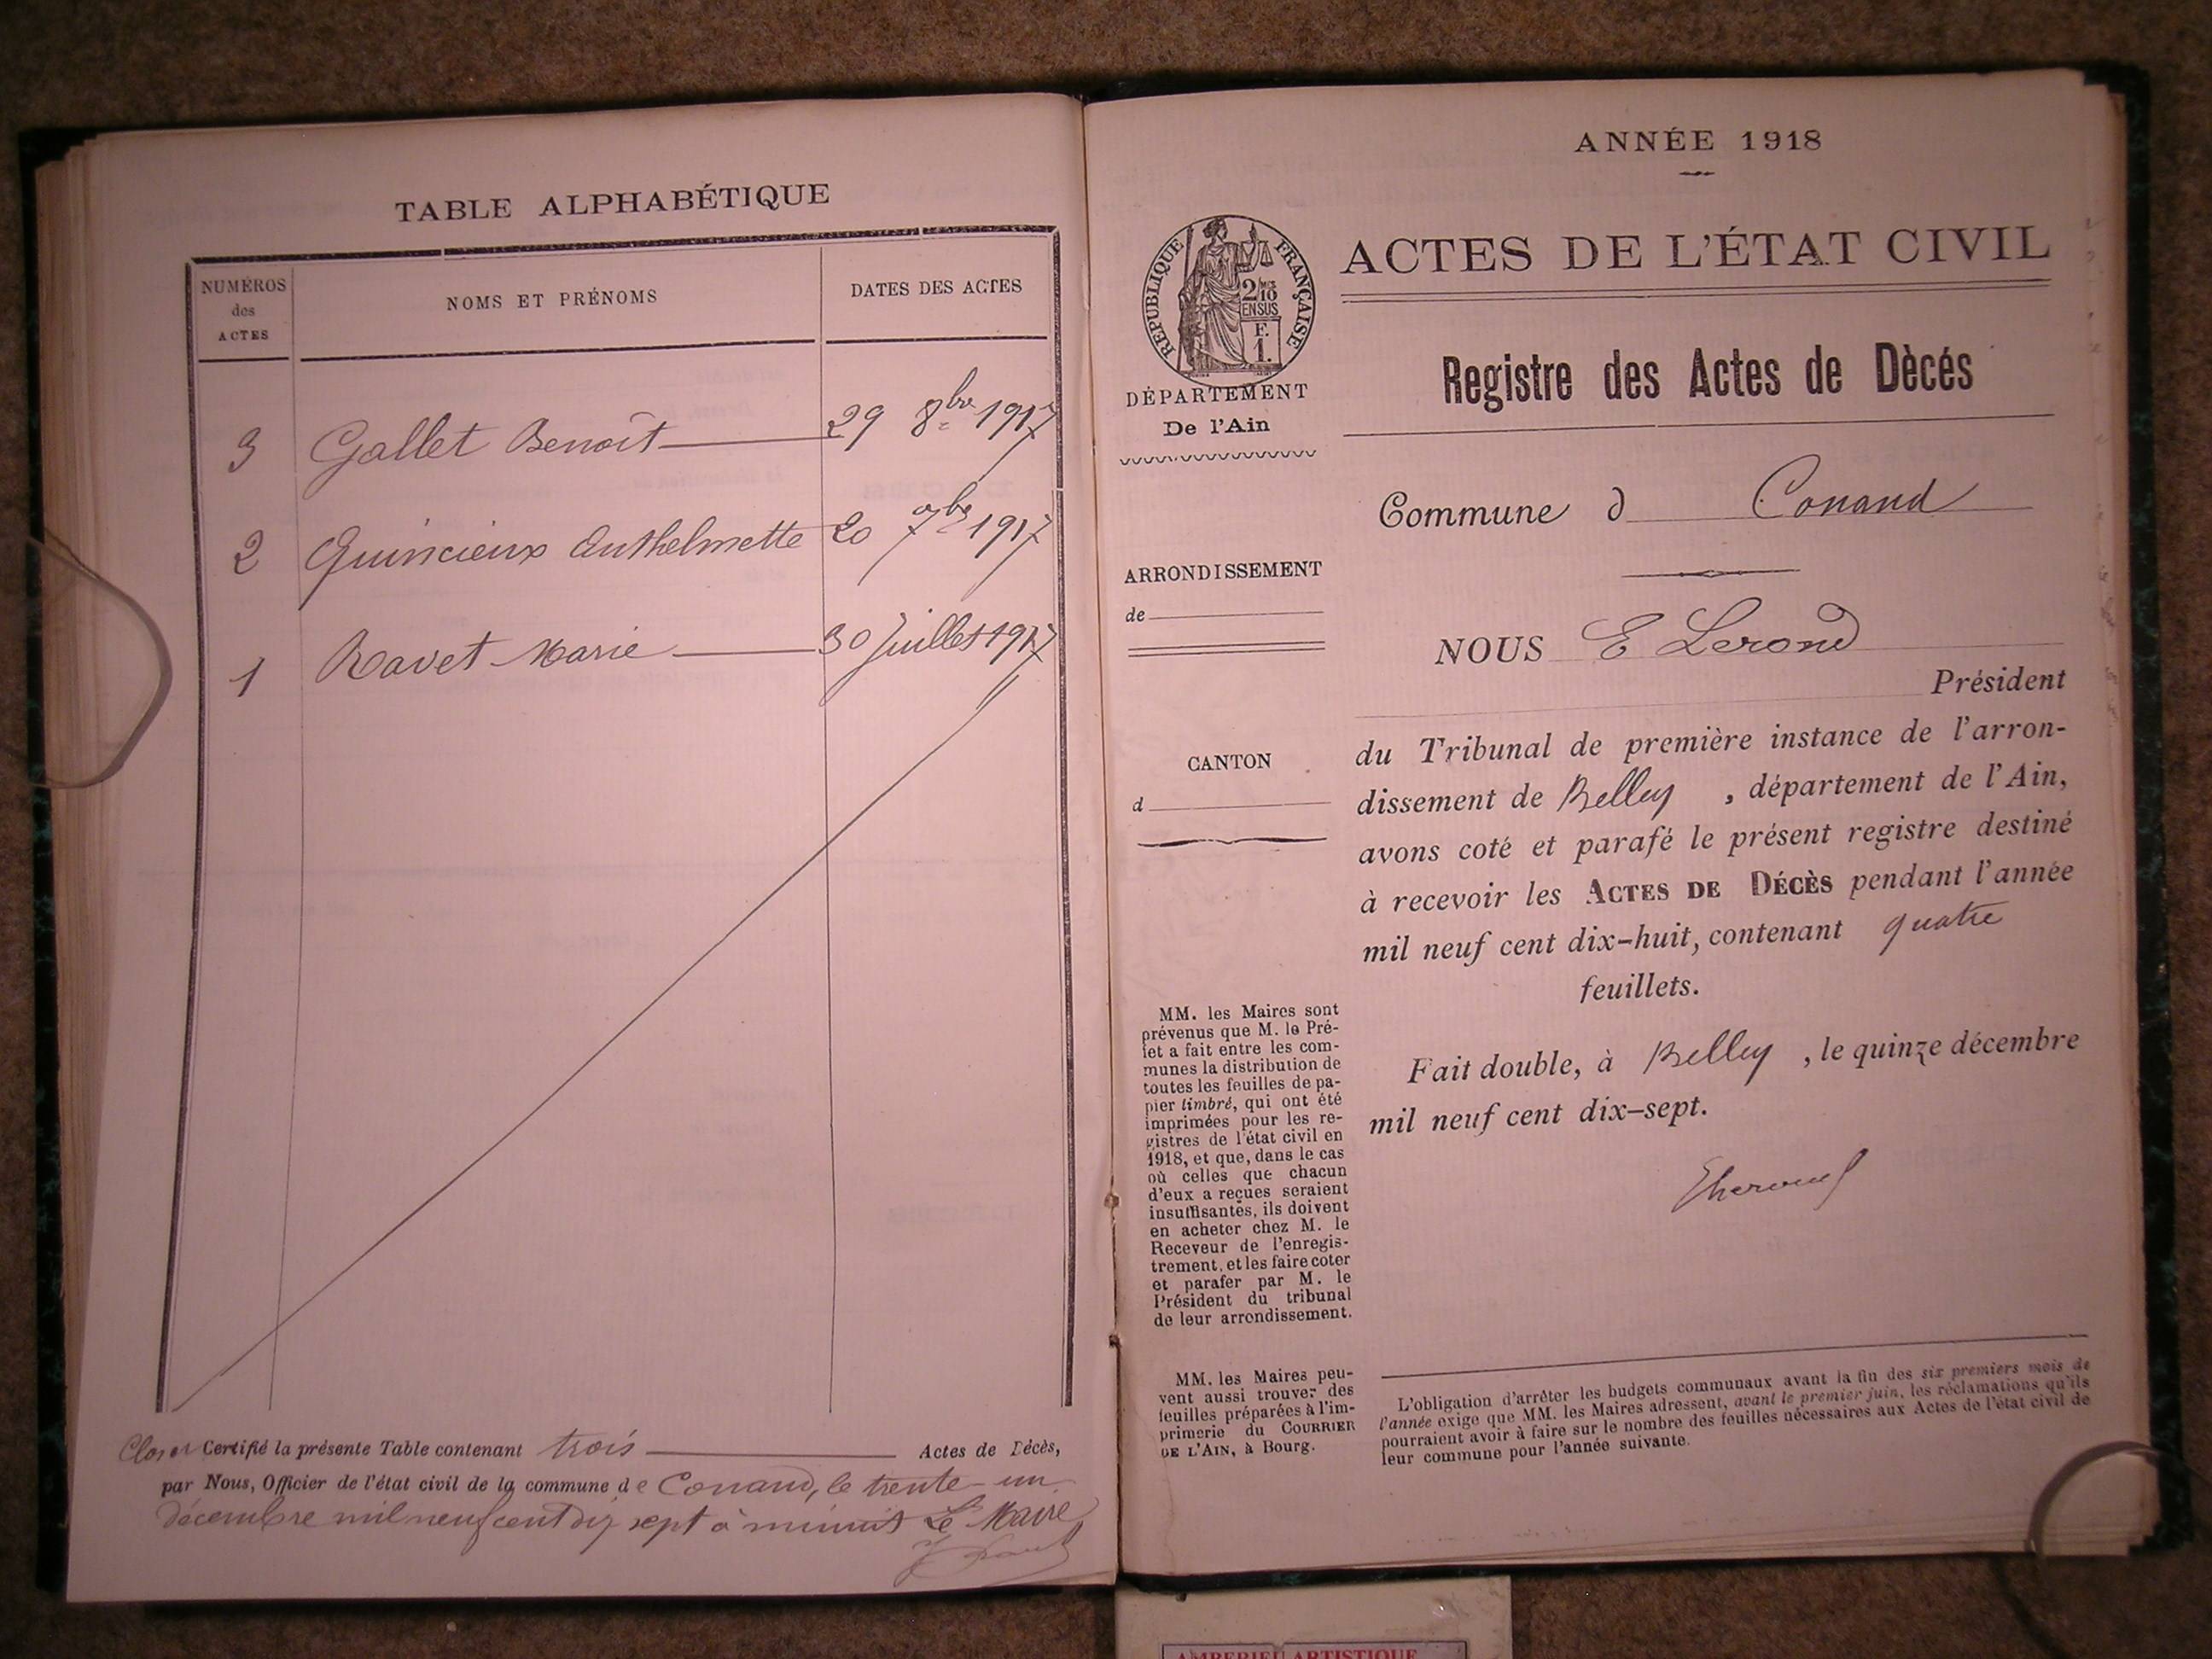 TABLE ALPHABÉTIQUE
NUMÉROS
des
ACTES
NOMS ET PRÉNOMS
DATES DES ACTES
3 Gallet Benoît 29 8bre 1917
2 Quincieux Anthelmette 20 7bre 1917
1 Ravet Marie 30 Juillet 1917
Clos et Certifié la présente Table contenant trois Actes de Décès,
par Nous, Officier de l'état civil de la commune de Conand, le trente-un
décembre mil neuf cent dix sept à minuit Le Maire
ANNÉE 1918
RÉPUBLIQUE FRANÇAISE
2/10
EN SUS
F.
1.
DÉPARTEMENT
De l'Ain
ARRONDISSEMENT
de
CANTON
d
MM. les Maires sont
prévenus que M. le Pré-
fet a fait entre les com-
munes la distribution de
toutes les feuilles de pa-
pier timbré, qui ont été
imprimées pour les re-
gistres de l'état civil en
1918, et que, dans le cas
où celles que chacun
d'eux a reçues seraient
insuffisantes, ils doivent
en acheter chez M. le
Receveur de l'enregis-
trement, et les faire coter
et parafer par M. le
Président du tribunal
de leur arrondissement.
MM. les Maires peu-
vent aussi trouver des
feuilles préparées à l'im-
primerie du COURRIER
DE L'AIN, à Bourg.
ACTES DE L'ÉTAT CIVIL
Registre des Actes de Dècés
Commune d Conand
NOUS E Lerond
Président
du Tribunal de première instance de l'arron-
dissement de Belley , département de l'Ain,
avons coté et parafé le présent registre destiné
à recevoir les ACTES DE DÉCÈS pendant l'année
mil neuf cent dix-huit, contenant quatre
feuillets.
Fait double, à Belley , le quinze décembre
mil neuf cent dix-sept.
L'obligation d'arrêter les budgets communaux avant la fin des six premiers mois de
l'année exige que MM. les Maires adressent, avant le premier juin, les réclamations qu'ils
pourraient avoir à faire sur le nombre des feuilles nécessaires aux Actes de l'état civil de
leur commune pour l'année suivante.
AMBERIEU ARTISTIQUE